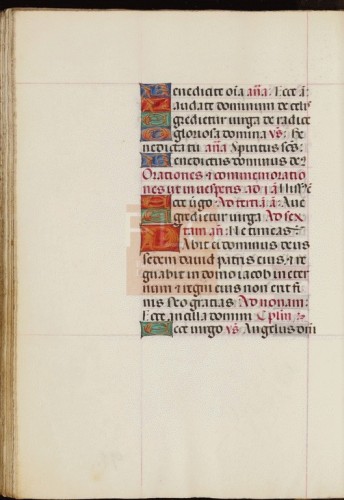 Benedicite oīa añā. Ecce ā
Laudate dominum de celis
Egredietur virga de radice
O gloriosa domina vs. Be
nedicta tu añā Spiritus scs.
Benedictus dominus de2
Orationes et commemoratio
nes ut in vesperis. ad .i.ā Missꝰ
Ecce v̄go. Ad tertia ā. Aue
Egredietur virga Ad sex
tam añ. Ne timeas.
Dabit ei dominus deus
sedem dauid patris eius, et re
gnabit in domo iacob in eter
num et regni eius non erit fi
nis. Deo gracias. Ad nonam.
Ecce ancilla domini Cplin
Ecce uirgo vs Angelus dn̄i